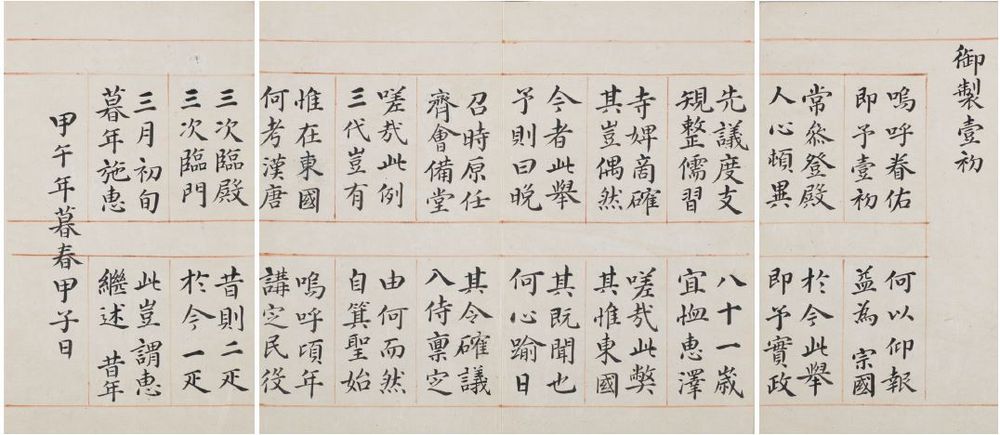 御製壹初
嗚呼眷佑 何以仰報
即予壹初 益為 宗國
常參登殿 於今此舉
人心頓異 即予實政
先議度支 八十一歲
規整儒習 宜恤惠澤
寺婢商確 嗟哉此弊
其豈偶然 其惟東國
今者此舉 其既聞也
予則曰晚 何心踰日
召時原任 其令確議
齊會備堂 入侍稟定
嗟哉此例 由何而然
三代豈有 自箕聖始
惟在東國 嗚呼頃年
何考漢唐 講定民役
三次臨殿 昔則二疋
三次臨門 於今一疋
三月初旬 此豈謂惠
暮年施惠 繼述 昔年
甲午年暮春甲子日